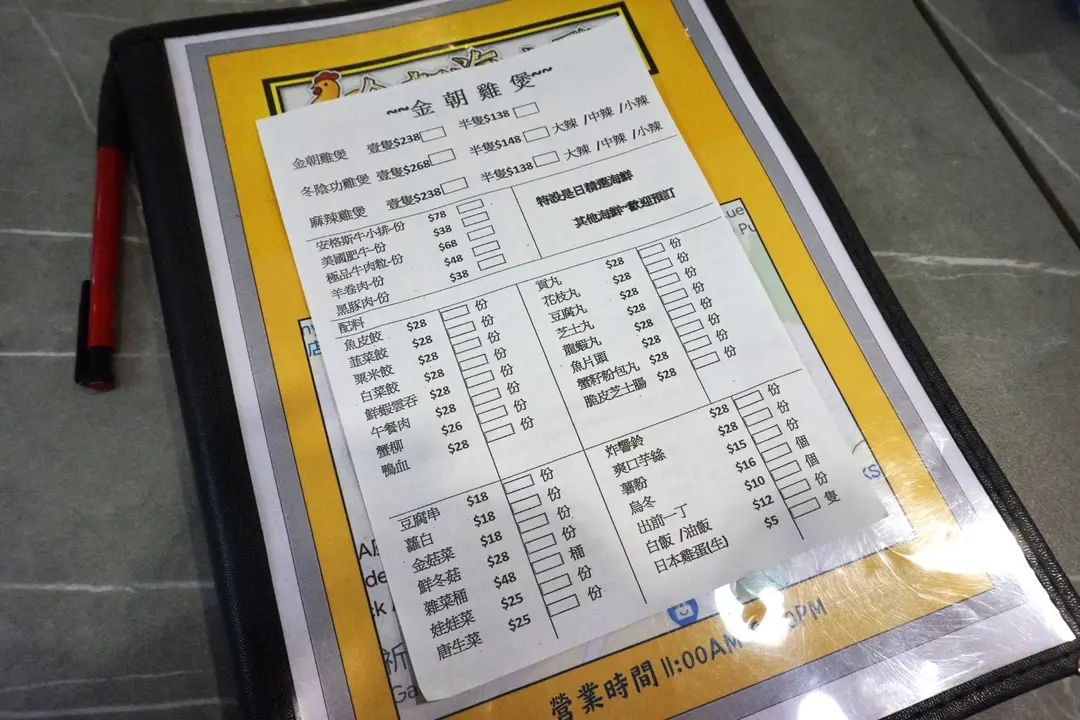 ~~金朝雞煲~~
金朝雞煲 壹隻$238 半隻$138
冬陰功雞煲 壹隻$268 半隻$148 大辣 /中辣 /小辣
麻辣雞煲 壹隻$238 半隻$138 大辣 /中辣 /小辣
安格斯牛小排-份 $78
美國肥牛-份 $38
極品牛肉粒-份 $68
羊卷肉-份 $48
黑豚肉-份 $38
特設是日精選海鮮
其他海鮮~歡迎預訂
配料
魚皮餃 $28 份
韮菜餃 $28 份
粟米餃 $28 份
白菜餃 $28 份
鮮蝦雲吞 $28 份
午餐肉 $28 份
蟹柳 $26 份
鴨血 $28 份
貢丸 $28 份
花枝丸 $28 份
豆腐丸 $28 份
芝士丸 $28 份
龍蝦丸 $28 份
魚片頭 $28 份
蟹籽粉包丸 $28 份
脆皮芝士腸 $28 份
豆腐串 $18 份
蘿白 $18 份
金菇菜 $18 份
鮮冬菇 $28 份
雜菜桶 $48 桶
娃娃菜 $25 份
唐生菜 $25 份
炸響鈴 $28 份
爽口芋絲 $28 份
薯粉 $15 份
烏冬 $16 個
出前一丁 $10 個
白飯 /油飯 $12 份
日本雞蛋(生) $5 隻
營業時間 11:00AM